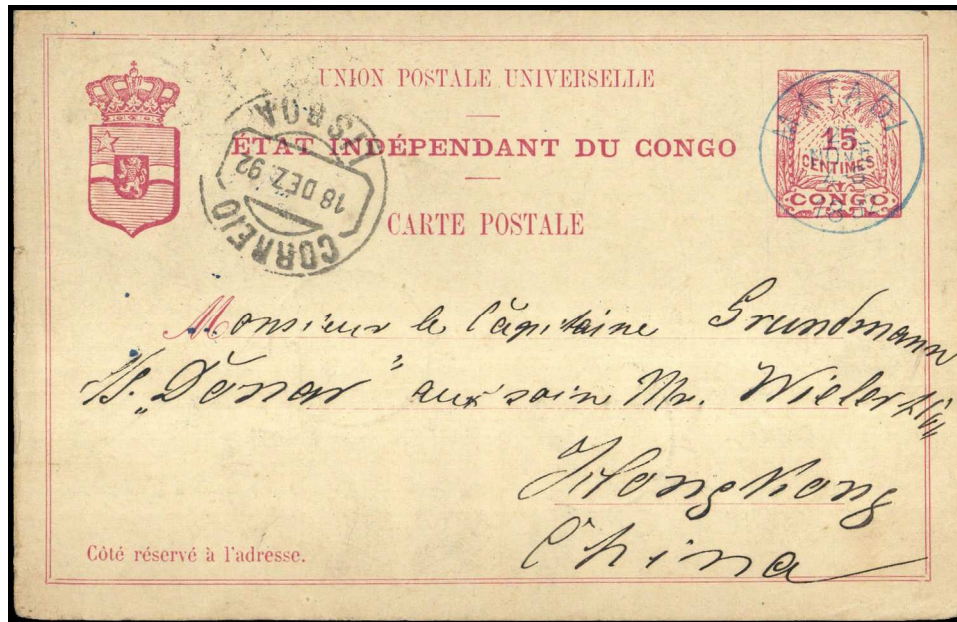 UNION POSTALE UNIVERSELLE
ÉTAT INDÉPENDANT DU CONGO
CARTE POSTALE
15
CENTIMES
CONGO
MATADI
CORREIO
18 DEZ. 92
LISBOA
Monsieur le Capitaine Grundmann
S/S. „Donar” aux soin Mr. Wieler
Hongkong
China
Côté réservé à l'adresse.